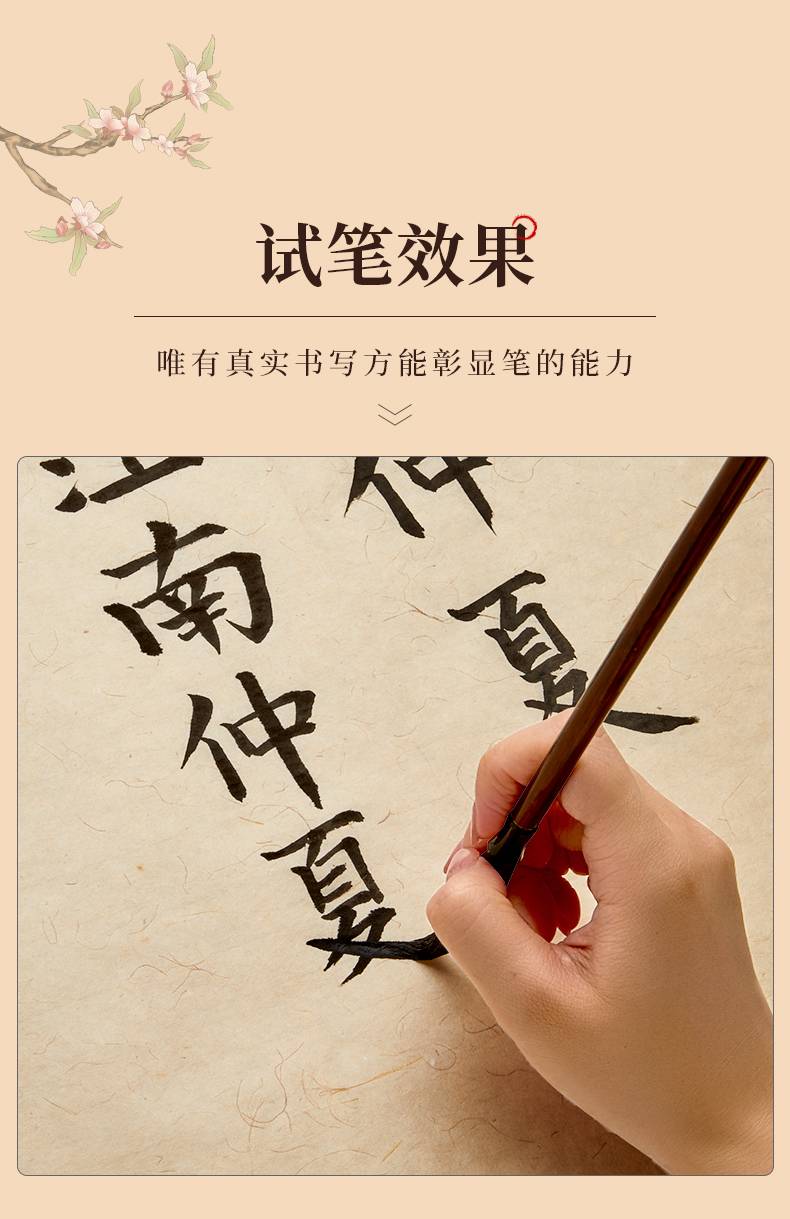 试笔效果
唯有真实书写方能彰显笔的能力
仲夏
江南仲夏